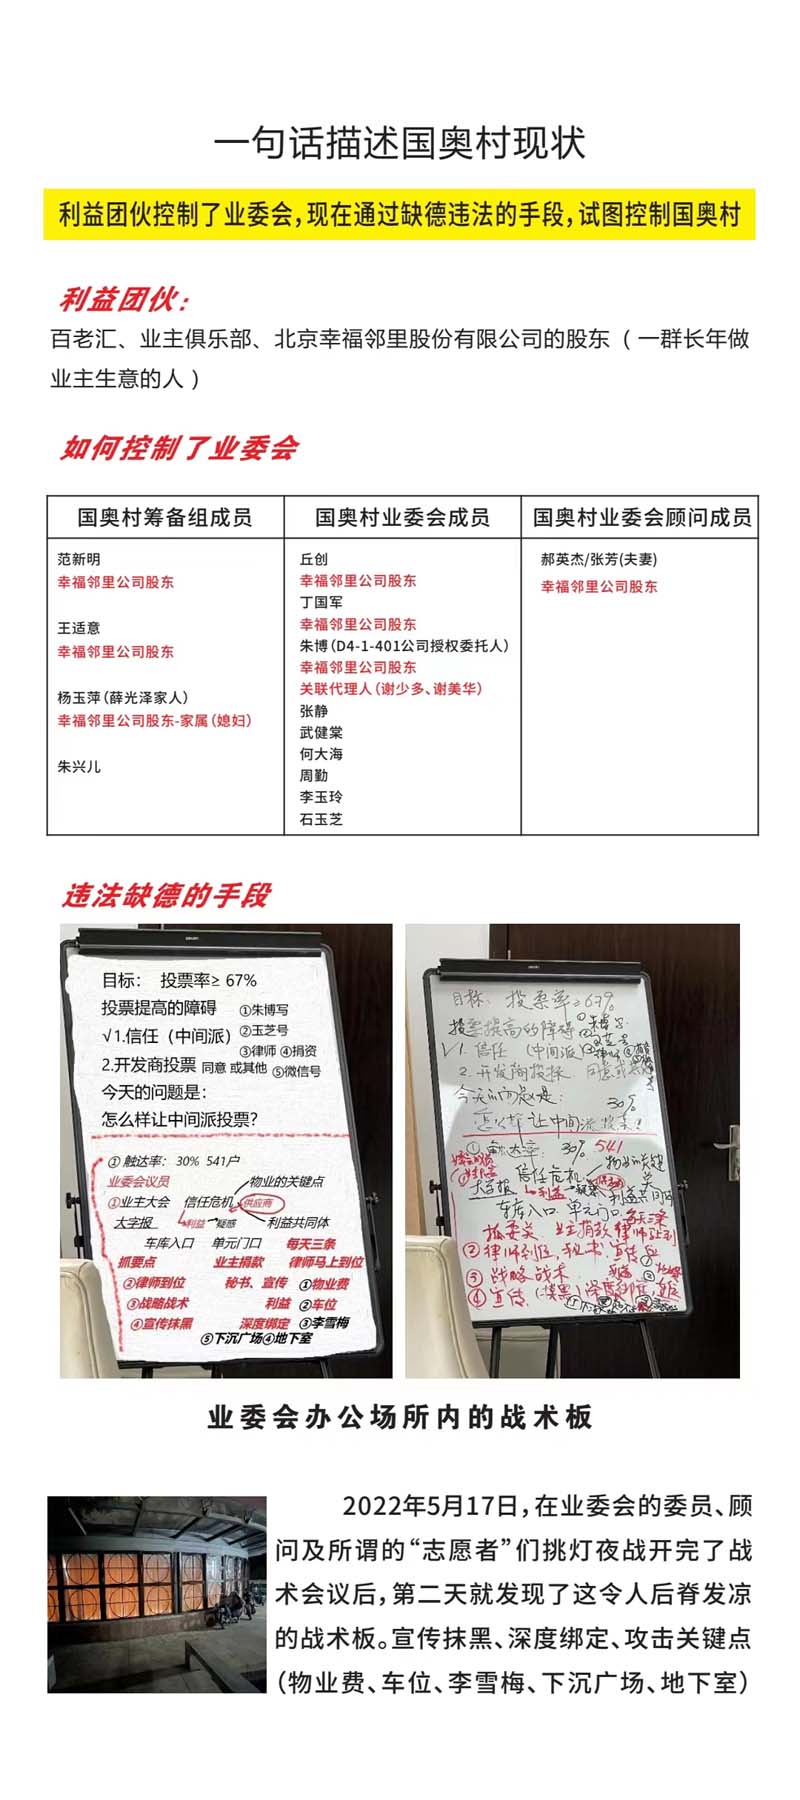 一句话描述国奥村现状
利益团伙控制了业委会，现在通过缺德违法的手段，试图控制国奥村
利益团伙：
百老汇、业主俱乐部、北京幸福邻里股份有限公司的股东（一群长年做
业主生意的人）
如何控制了业委会
国奥村筹备组成员
范新明
幸福邻里公司股东
王适意
幸福邻里公司股东
杨玉萍（薛光泽家人）
幸福邻里公司股东-家属（媳妇）
朱兴儿
国奥村业委会成员
丘创
幸福邻里公司股东
丁国军
幸福邻里公司股东
朱博（D4-1-401公司授权委托人）
幸福邻里公司股东
关联代理人（谢少多、谢美华）
张静
武健棠
何大海
周勤
李玉玲
石玉芝
国奥村业委会顾问成员
郝英杰/张芳(夫妻)
幸福邻里公司股东
违法缺德的手段
目标： 投票率≥ 67%
投票提高的障碍 ①朱博写
√1.信任（中间派） ②玉芝号
③律师 ④捐资
2.开发商投票 同意 或其他 ⑤微信号
今天的问题是：
怎么样让中间派投票？
① 触达率： 30% 541户
业委会议员 物业的关键点
①业主大会 信任危机 供应商
大字报 利益 疑惑 利益共同体
车库入口 单元门口 每天三条
抓要点 业主捐款 律师马上到位
②律师到位 秘书、宣传 ①物业费
③战略战术 利益 ②车位
④宣传抹黑 深度绑定 ③李雪梅
⑤下沉广场④地下室
目标： 投票率≥67%
投票提高的障碍
√1. 信任 （中间派）
2. 开发商投票 同意或
今天的问题是：
怎么样让中间派投票？
30%
① 触达率： 30% 541
信任危机
大字报 利益 疑惑 利益共同体
车库入口 单元门口 每天三条
业主捐款 律师马上到
② 律师到位，秘书、宣传
③ 战略战术 利益
④ 宣传（抹黑）深度绑定
业委会办公场所内的战术板
2022年5月17日，在业委会的委员、顾
问及所谓的“志愿者”们挑灯夜战开完了战
术会议后，第二天就发现了这令人后脊发凉
的战术板。宣传抹黑、深度绑定、攻击关键点
（物业费、车位、李雪梅、下沉广场、地下室）